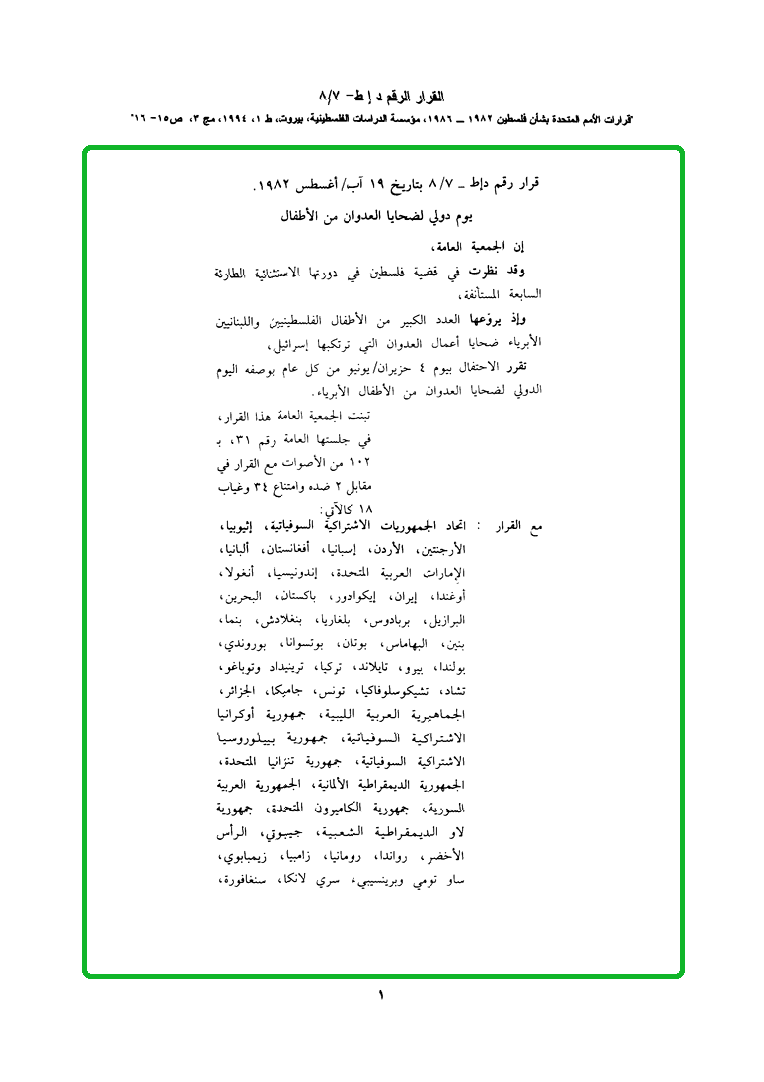 القرار الرقم د إ ط- ٨/٧
"قرارات الأمم المتحدة بشأن فلسطين ١٩٨٢ ــ ١٩٨٦، مؤسسة الدراسات الفلسطينية، بيروت، ط ١، ١٩٩٤، مج ٣، ص١٥- ١٦"
قرار رقم دإط ـ ٨/٧ بتاريخ ١٩ آب/ أغسطس ١٩٨٢.
يوم دولي لضحايا العدوان من الأطفال
إن الجمعية العامة،
وقد نظرت في قضية فلسطين في دورتها الاستثنائية الطارئة
السابعة المستأنفة،
وإذ يروّعها العدد الكبير من الأطفال الفلسطينيين واللبنانيين
الأبرياء ضحايا أعمال العدوان التي ترتكبها إسرائيل،
تقرر الاحتفال بيوم ٤ حزيران/يونيو من كل عام بوصفه اليوم
الدولي لضحايا العدوان من الأطفال الأبرياء.
تبنت الجمعية العامة هذا القرار،
في جلستها العامة رقم ٣١، بـ
١٠٢ من الأصوات مع القرار في
مقابل ٢ ضده وامتناع ٣٤ وغياب
١٨ كالآتي:
مع القرار : اتحاد الجمهوريات الاشتراكية السوفياتية، إثيوبيا،
الأرجنتين، الأردن، إسبانيا، أفغانستان، ألبانيا،
الإمارات العربية المتحدة، إندونيسيا، أنغولا،
أوغندا، إيران، إيكوادور، باكستان، البحرين،
البرازيل، بربادوس، بلغاريا، بنغلادش، بنما،
بنين، البهاماس، بوتان، بوتسوانا، بوروندي،
بولندا، بيرو، تايلاند، تركيا، ترينيداد وتوباغو،
تشاد، تشيكوسلوفاكيا، تونس، جاميكا، الجزائر،
الجماهيرية العربية الليبية، جمهورية أوكرانيا
الاشتراكية السوفياتية، جمهورية بييلوروسيا
الاشتراكية السوفياتية، جمهورية تنزانيا المتحدة،
الجمهورية الديمقراطية الألمانية، الجمهورية العربية
السورية، جمهورية الكاميرون المتحدة، جمهورية
لاو الديمقراطية الشعبية، جيبوتي، الرأس
الأخضر، رواندا، رومانيا، زامبيا، زيمبابوي،
ساو تومي وبرينسيبي، سري لانكا، سنغافورة،
١